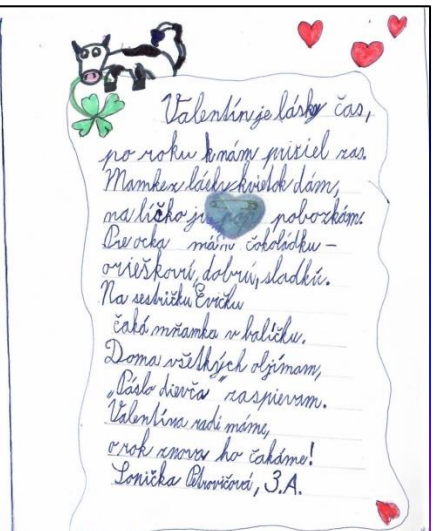 Valentín je lásky čas,
po roku k nám prišiel zas.
Mamke z lásky kvietok dám,
na líčko ju pobozkám.
Pre ocka mám čokoládku –
orieškovú, dobrú, sladkú.
Na sestričku Evičku
čaká mňamka v balíčku.
Doma všetkých objímam,
„Páslo dievča" zaspievam.
Valentína radi máme,
o rok znova ho čakáme!
Sonička Petrovičová, 3.A.